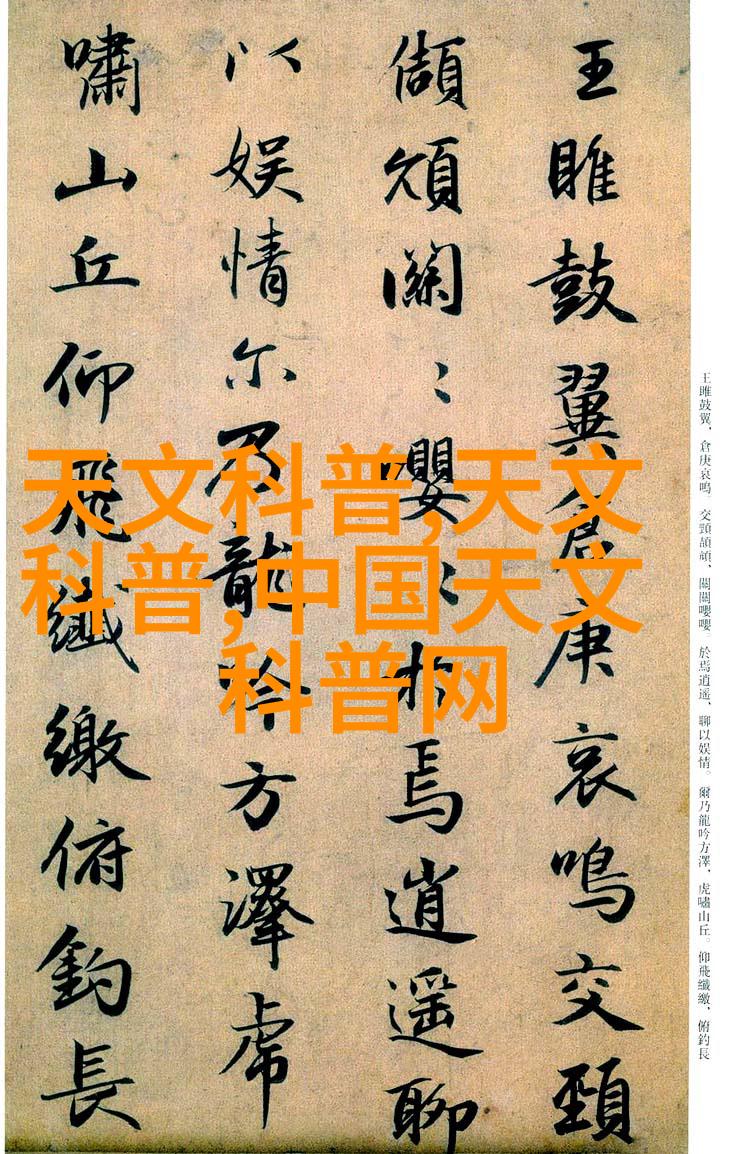 王雎鼓翼倉庚哀鳴交頸
頡頏關〻嚶〻於焉逍遥聊
以娱情尓乃龍吟方澤虎
嘯山丘仰飛纖繳俯釣長
天文科普,天文
科普,中国天文
科普网
王雎鼓翼、倉庚哀鳴。交頸頡頏、關關嚶嚶。於焉逍遥、聊以娱情。爾乃龍吟方澤、虎嘯山丘。仰飛纖繳、俯釣長